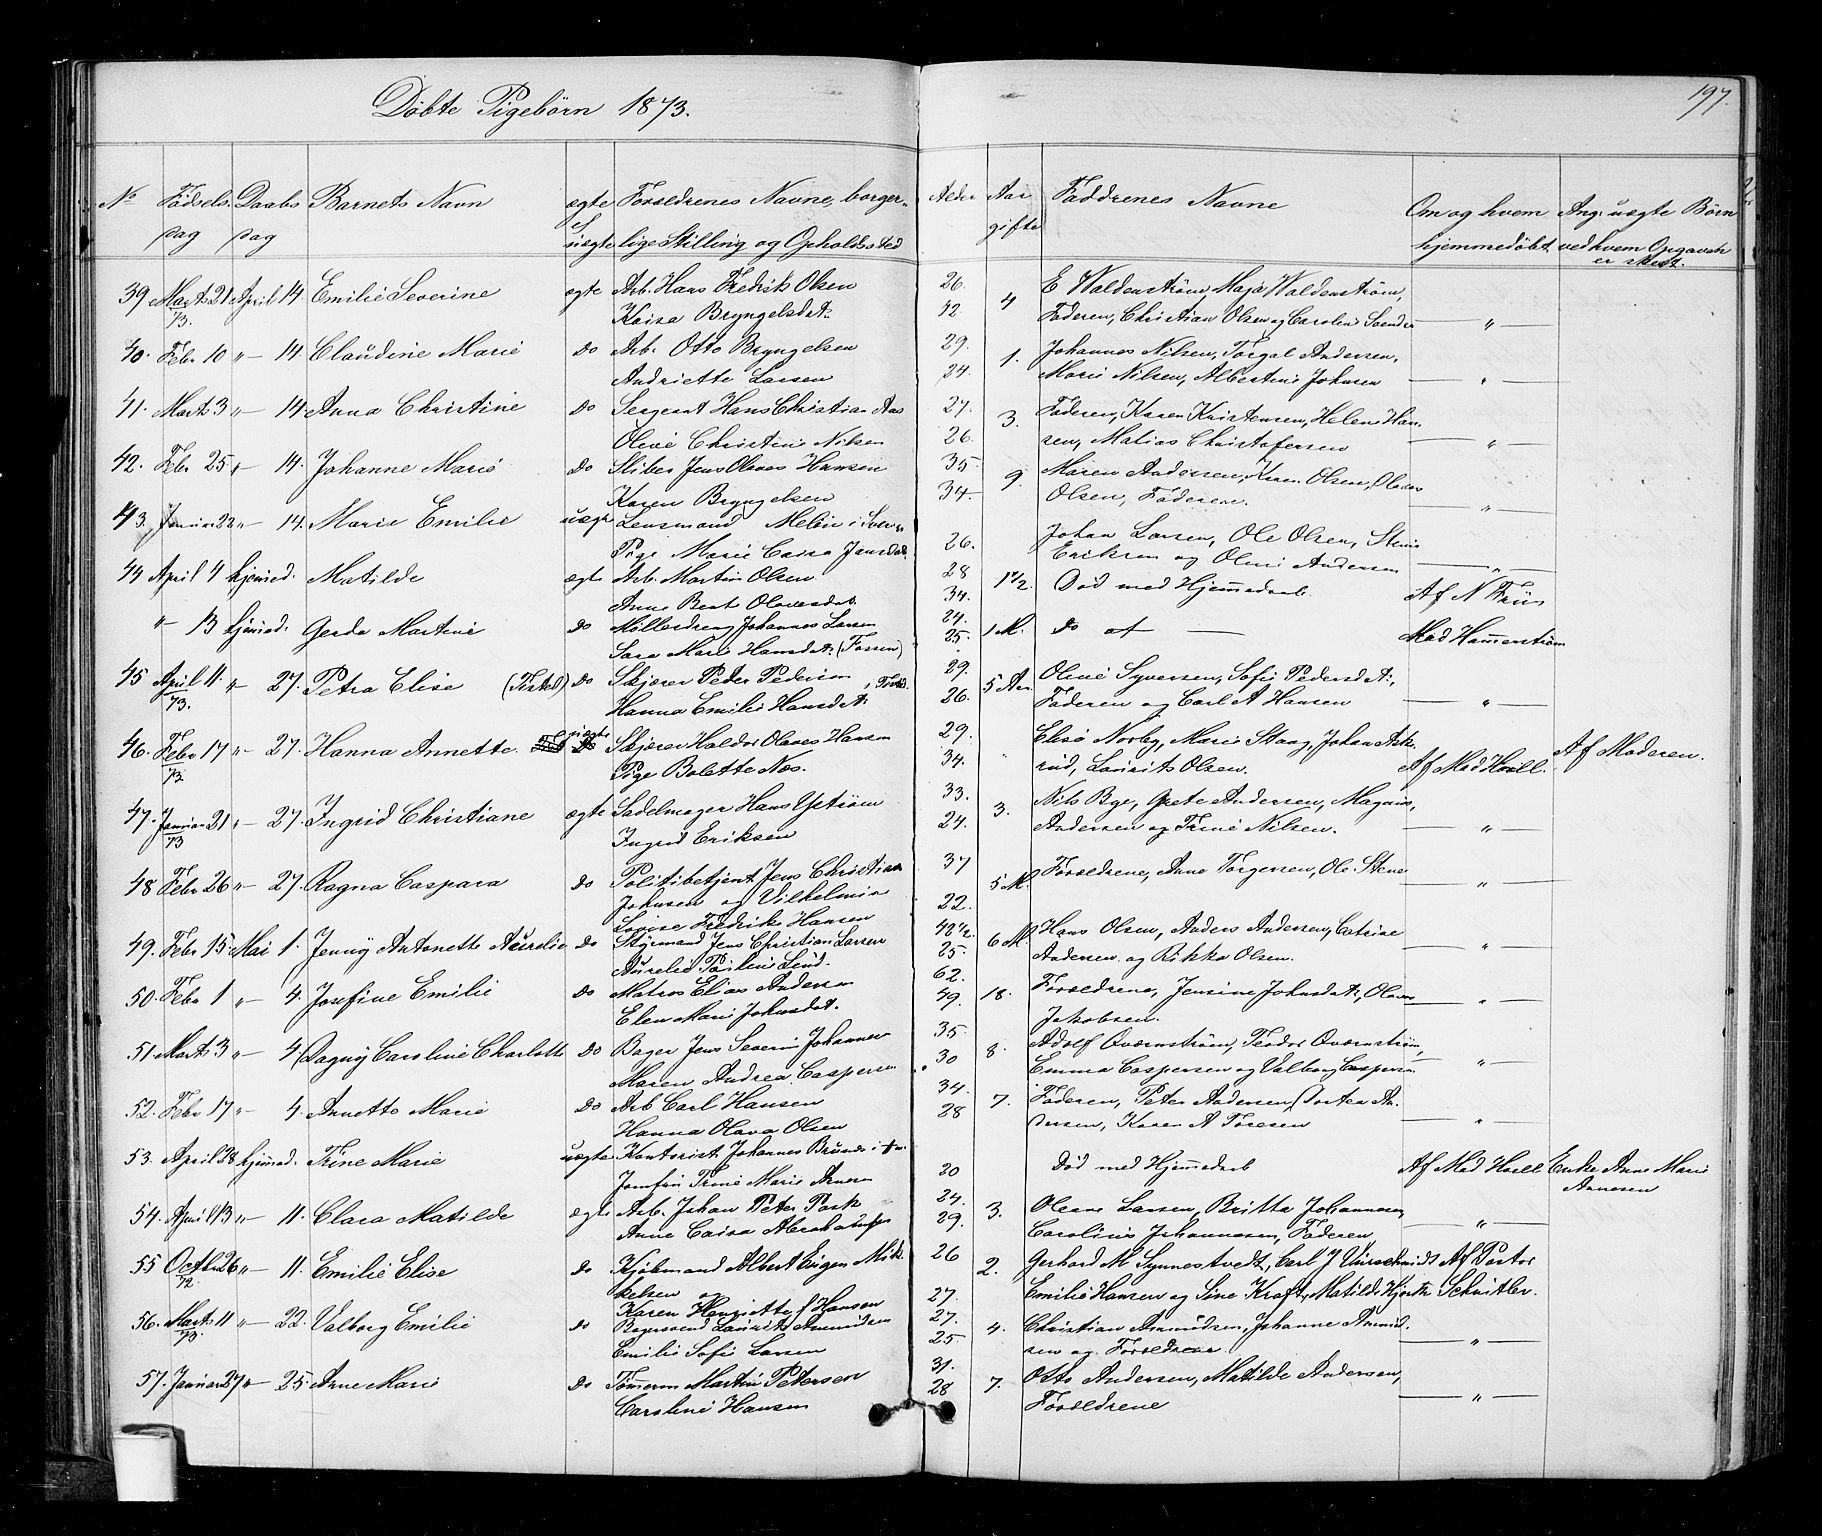 Døbte Pigebørn 1873.
197.
No Fødsels Daabs Barnets Navn ægte Forældrenes Navne, borger- Alder Aar Faddrenes Navne Om og hvem Ang. uægte Børn
dag dag uægte lige Stilling og Opholdssted gifte hjemmedøbt ved hvem Opgaven er skeet.
39 Marts 21 April 14 Emilie Severine ægte Arb. Hans Fredrik Olsen 26. 4 E Waldenstrøm, Maja Waldenstrøm,
73. Kaisa Bryngelsdt. 42 Faderen, Christian Olsen og Caroline — " —
40. Febr 10 " 14. Claudine Marie do Arb. Otto Bryngelsen 29. 1. Johannes Nilsen, Torgal Andersen,
Andriette Larsen 24. Marie Nilsen, Albertine Johnsen — " —
41. Marts 3 " 14 Anna Christine do Sergeant Hans Christian Aas 27. 3. Faderen, Karen Kristensen, Helene Han-
Olive Christine Nilsen 26. sen, Matias Christofersen — " —
42. Febr 25 " 14. Johanne Marie do Stiber Jens Olaves Hansen 35. 9. Maren Andersen, Karen Olsen, Olaves
Karen Bryngelsen 34 Olsen, Faderen. — " —
43. Januar 22 " 14. Marie Emilie uægte Lensmand Melin i Sverig Johan Larsen, Ole Olsen, Stene
Pige Marie Caisa Jansdt. 26. Eriksen og Oline Andersen — " —
44 April 4 hjemmed. Matilde ægte Arb. Martin Olsen 28 1 1/2 Død med Hjemmedaab. Af N Friis
Anne Beate Olavesdt. 34.
" 13 hjemmed. Gerda Martine do Møllerdreng Johannes Larsen 24. 1 M. do af — Mad Hammerstrøm
Sara Marie Hansdt. (Fossen) 25.
45 April 11. " 27. Petra Elise (Tisted) do Skjærer Peder Pedersen 29. 5 Aar Olive Syversen, Sofie Pedersdt.,
73. Hanna Emilie Hansdt. 26. Faderen og Carl A Hansen — " —
46. Febr 17 " 27. Hanna Annette. uægte Skjærer Haldor Olaves Hansen 29. Elise Norby, Marie Staag, Johan Ask-
73 Pige Bolette Næs. 34. " rud, Laurits Olsen. Af Mad Hvall. Af Moderen.
47. Januar 21 " 27. Ingrid Christiane ægte Sadelmager Hans Ystrøm 33. 3. Nils Bye, Grete Andersen, Magnus
73 Ingrid Eriksen 24. Andersen og Trine Nilsen. — " —
48 Febr 26 " 27. Ragna Caspara do Politibetjent Jens Christian 37 5 M. Forældrene, Anne Torgersen, Ole Stene
Johnsen og Vilhelmine — " —
Lovise Fredrike Hansen 22.
49. Febr 15. Mai 1. Jenny Antonette Aurelie do Styrmand Jens Christian Larsen 42 1/2. 6 M. Hans Olsen, Anders Andersen, Catrine
Aurelie Pauline Lind. 25. Andersen og Rikke Olsen. — " —
50. Febr 1 " 4. Josefine Emilie do Matros Elias Andersen 62. 18. Forældrene, Jensine Johnsdt., Olaves
Elen Marie Johnsdt. 49. Jakobsen. — " —
51. Marts 3 " 4 Dagny Caroline Charlotte do Bager Jens Severin Johannesen 35 8. Adolf Qværnstrøm, Teodor Qværnstrøm,
Maren Andrea Caspersen 30 Emma Caspersen og Valborg Caspersen — " —
52. Febr 17 " 4. Annette Marie do Arb Carl Hansen 34. 7. Faderen, Peter Andersen, Dortea An-
Hanna Olava Olsen 28 dersen, Karen A Toresen — " —
53. April 28 hjemmed. Trine Marie uægte Kontorist Johannes Død med Hjemmedaab Af Mad Hvall Enke Anne Marie
Jomfru Trine Marie Arnesen 20 Arnesen
54. April 13 " 11. Clara Matilde ægte Arb. Johan Peter Park 24. 3. Oleane Larsen, Britta Johannesen,
Anne Caisa Abrahamsen 29. Carolius Johannesen, Faderen — " —
55 Octbr 26 " 11. Emilie Elise do Kjøbmand Albert Eugen Mik- 26 2. Gerhard M Synnestvedt, Carl J Af Pastor
72. kelsen og Emilie Hansen og Sine Kraft, Matilde Schnitler.
Karen Henriette f Hansen 27.
56. Marts 11 " 22. Valborg Emilie do Bagersvend Laurits Amundsen 27. 4. Christian Amundsen, Johanne Amund-
73. Emilie Sofie Larsen 25 sen og Forældrene. — " —
57. Januar 27 " 25. Anne Marie do Tømmerm Martin Petersen 31. 7. Otto Andersen, Matilde Andersen,
Caroline Hansen 28 Forældrene — " —